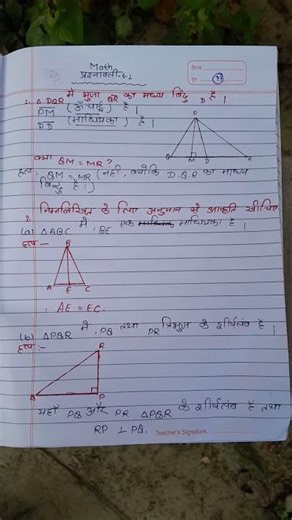 Math
प्रश्नावली:- 6.1
Date
77
1. △ DQR में भुजा QR का मध्य बिंदु D है।
PM (ऊँचाई) है।
DD (माध्यिका) है।
D
Q M D R
क्या QM = MR?
हल:- QM = MR (नहीं, क्योंकि D.QR का माध्य
बिंदु है।)
2. निम्नलिखित के लिए अनुमान से आकृति खींचिए
(a) △ABC में, BE एक माध्यिका है।
हल:-
B
A E C
∴ AE = EC.
(b) △PQR में, PQ तथा PR त्रिभुज के शीर्षलंब है।
हल:-
R
Q P
यहाँ PQ और PR △PQR के शीर्षलंब है तथा
RP ⊥ PQ.
Teacher's Signature